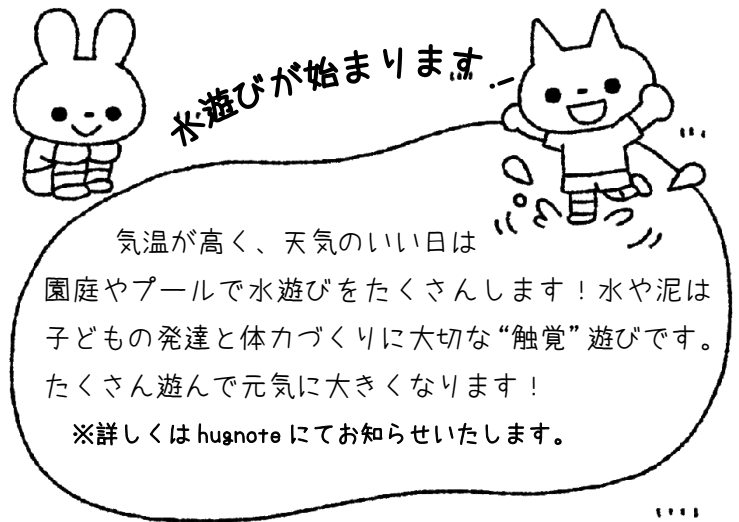 水遊びが始まります
気温が高く、天気のいい日は
園庭やプールで水遊びをたくさんします！水や泥は
子どもの発達と体力づくりに大切な“触覚”遊びです。
たくさん遊んで元気に大きくなります！
※詳しくは hugnote にてお知らせいたします。